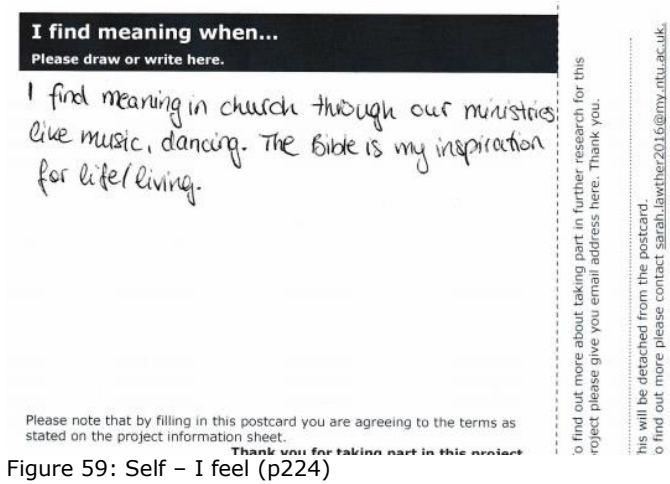 I find meaning when...
Please draw or write here.
I find meaning in church through our ministries
like music, dancing. The Bible is my inspiration
for life/living.
Please note that by filling in this postcard you are agreeing to the terms as
stated on the project information sheet.
Thank you for taking part in this project
Figure 59: Self – I feel (p224)
o find out more about taking part in further research for this
roject please give you email address here. Thank you.
his will be detached from the postcard.
o find out more please contact sarah.lawther2016@my.ntu.ac.uk.